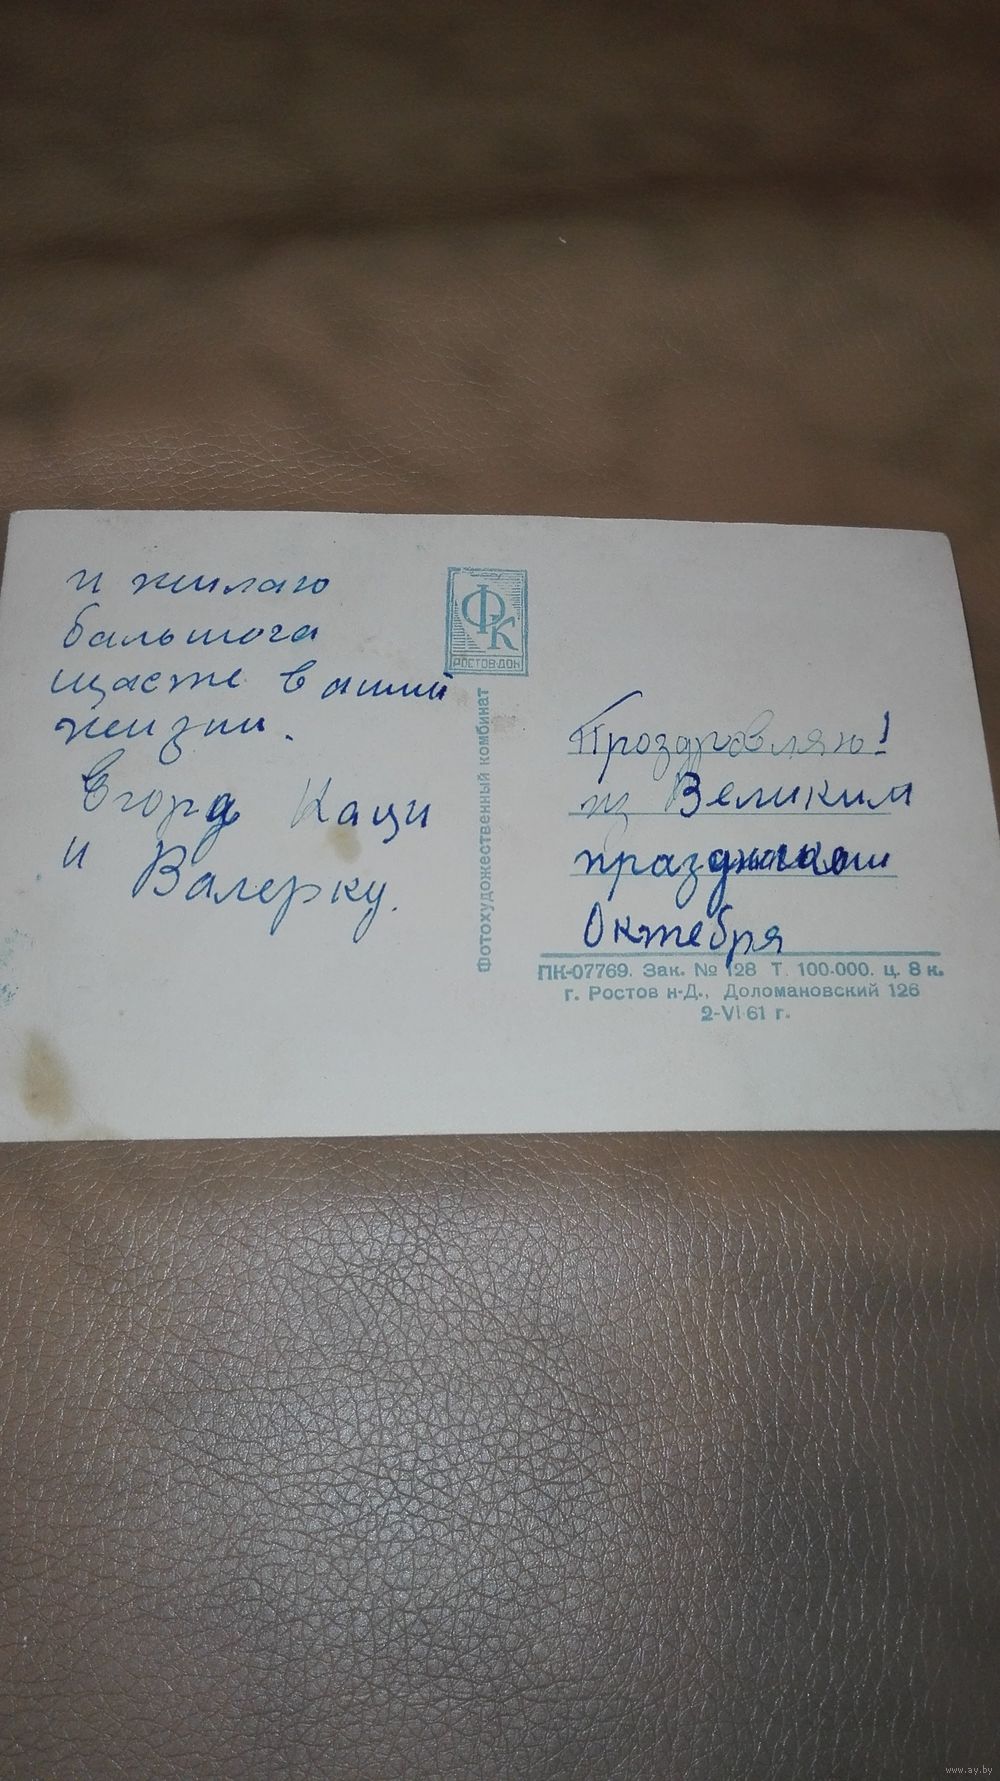 и жилаю
бальшога
щасте в ашій
жизни.
Егора Каци
и Валерку.
ФК
РОСТОВ-ДОН
Фотохудожественный комбинат
Проздровляю!
из Великим
праздником
Октебря
ПК-07769. Зак. № 128 Т. 100-000. ц. 8 к.
г. Ростов н-Д., Доломановский 126
2-VI-61 г.
www.ay.by